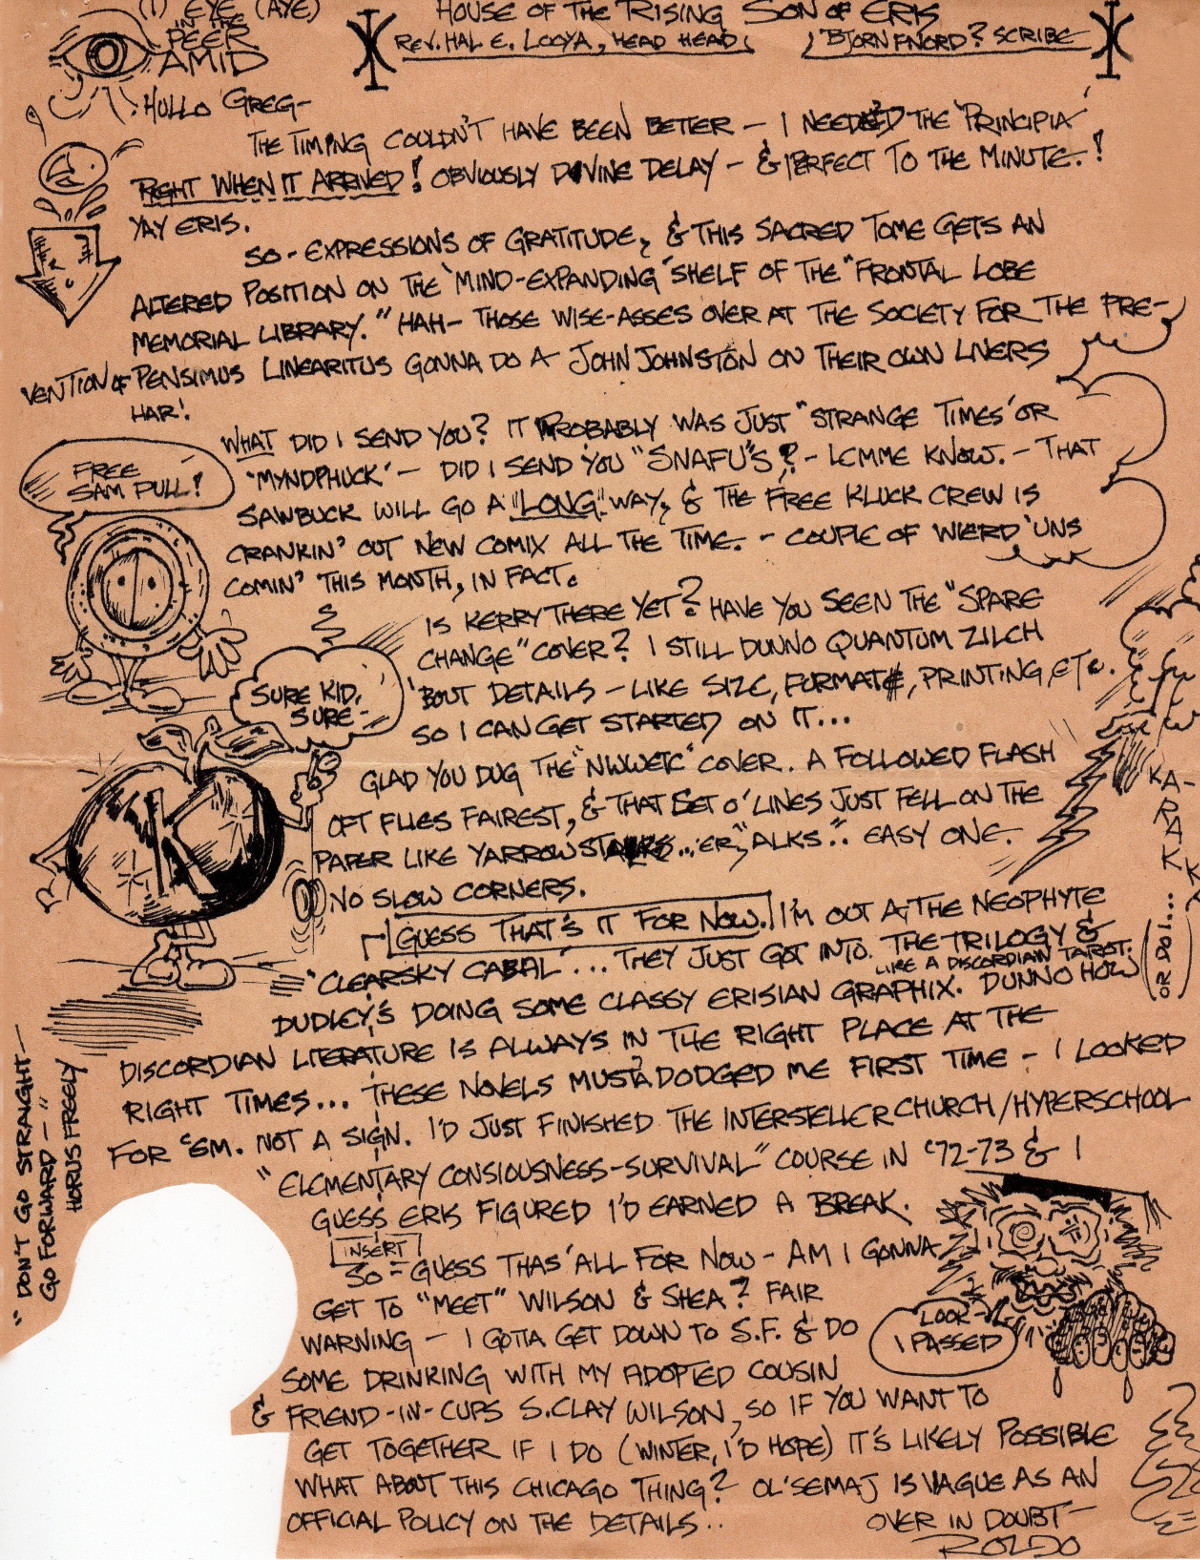 (I) EYE (AYE)
IN THE
PEER
AMID
HOUSE OF THE RISING SON OF ERIS
REV. HAL E. LOOYA, HEAD HEAD, BJORN FNORD? SCRIBE
HULLO GREG-
THE TIMING COULDN'T HAVE BEEN BETTER - I NEEDED THE 'PRINCIPIA'
RIGHT WHEN IT ARRIVED! OBVIOUSLY DIVINE DELAY - & PERFECT TO THE MINUTE.!
YAY ERIS.
SO - EXPRESSIONS OF GRATITUDE, & THIS SACRED TOME GETS AN
ALTERED POSITION ON THE 'MIND-EXPANDING' SHELF OF THE "FRONTAL LOBE
MEMORIAL LIBRARY." HAH - THOSE WISE-ASSES OVER AT THE SOCIETY FOR THE PRE-
VENTION OF PENSIMUS LINEARITUS GONNA DO A JOHN JOHNSTON ON THEIR OWN LNERS
HAR!
FREE
SAM PULL!
WHAT DID I SEND YOU? IT PROBABLY WAS JUST "STRANGE TIMES' OR
'MYNDPHUCK' - DID I SEND YOU "SNAFU"S? - LEMME KNOW. - THAT
SAWBUCK WILL GO A "LONG" WAY, & THE FREE KLUCK CREW IS
CRANKIN' OUT NEW COMIX ALL THE TIME. - COUPLE OF WIERD 'UNS
COMIN' THIS MONTH, IN FACT.
IS KERRY THERE YET? HAVE YOU SEEN THE "SPARE
CHANGE" COVER? I STILL DUNNO QUANTUM ZILCH
'BOUT DETAILS - LIKE SIZE, FORMAT, PRINTING, ETC.
SO I CAN GET STARTED ON IT...
SURE KID,
SURE -
K
GLAD YOU DUG THE "NWWETC" COVER. A FOLLOWED FLASH
OFT FLIES FAIREST, & THAT SET O' LINES JUST FELL ON THE
PAPER LIKE YARROW STALKS... ER, "ALKS". EASY ONE.
NO SLOW CORNERS.
KA-
R
A
K
K
(OR DO I...
GUESS THAT'S IT FOR NOW. I'M OUT AT THE NEOPHYTE
"CLEARSKY CABAL"... THEY JUST GOT INTO THE TRILOGY &
LIKE A DISCORDIAN TAROT.
DUDLEY'S DOING SOME CLASSY ERISIAN GRAPHIX. DUNNO HOW
DISCORDIAN LITERATURE IS ALWAYS IN THE RIGHT PLACE AT THE
RIGHT TIMES... THESE NOVELS MUSTA DODGED ME FIRST TIME - I LOOKED
FOR 'EM. NOT A SIGN. I'D JUST FINISHED THE INTERSTELLER CHURCH/HYPERSCHOOL
"ELEMENTARY CONSIOUSNESS-SURVIVAL" COURSE IN '72-73 & I
GUESS ERIS FIGURED I'D EARNED A BREAK.
INSERT
SO - GUESS THAS' ALL FOR NOW - AM I GONNA
GET TO "MEET" WILSON & SHEA? FAIR
WARNING - I GOTTA GET DOWN TO S.F. & DO
SOME DRINKING WITH MY ADOPTED COUSIN
& FRIEND-IN-CUPS S. CLAY WILSON, SO IF YOU WANT TO
GET TOGETHER IF I DO (WINTER, I'D HOPE) IT'S LIKELY POSSIBLE
WHAT ABOUT THIS CHICAGO THING? OL' SEMAJ IS VAGUE AS AN
OFFICIAL POLICY ON THE DETAILS..
OVER IN DOUBT -
ROLDO
LOOK -
I PASSED
"DON'T GO STRAIGHT -
GO FORWARD -"
HORUS FREELY